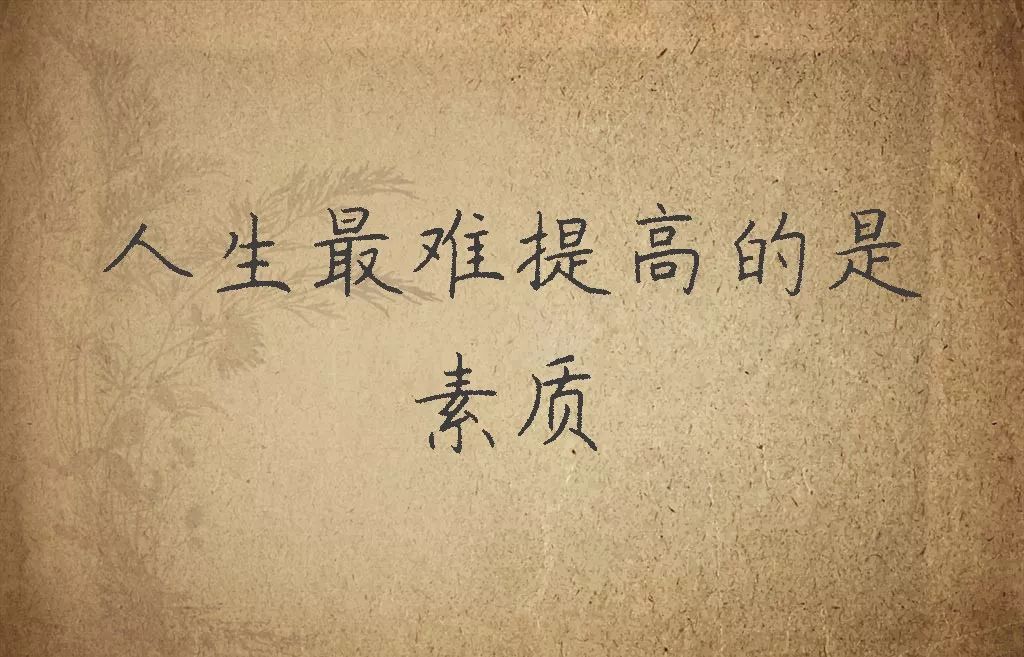 人生最难提高的是
素质